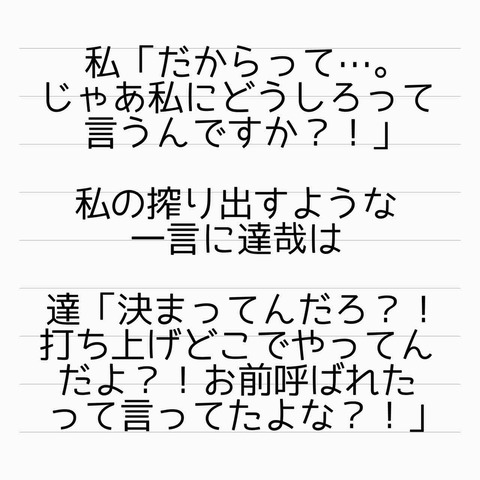 私「だからって…。
じゃあ私にどうしろって
言うんですか？！」
私の搾り出すような
一言に達哉は
達「決まってんだろ？！
打ち上げどこでやってん
だよ？！お前呼ばれた
って言ってたよな？！」